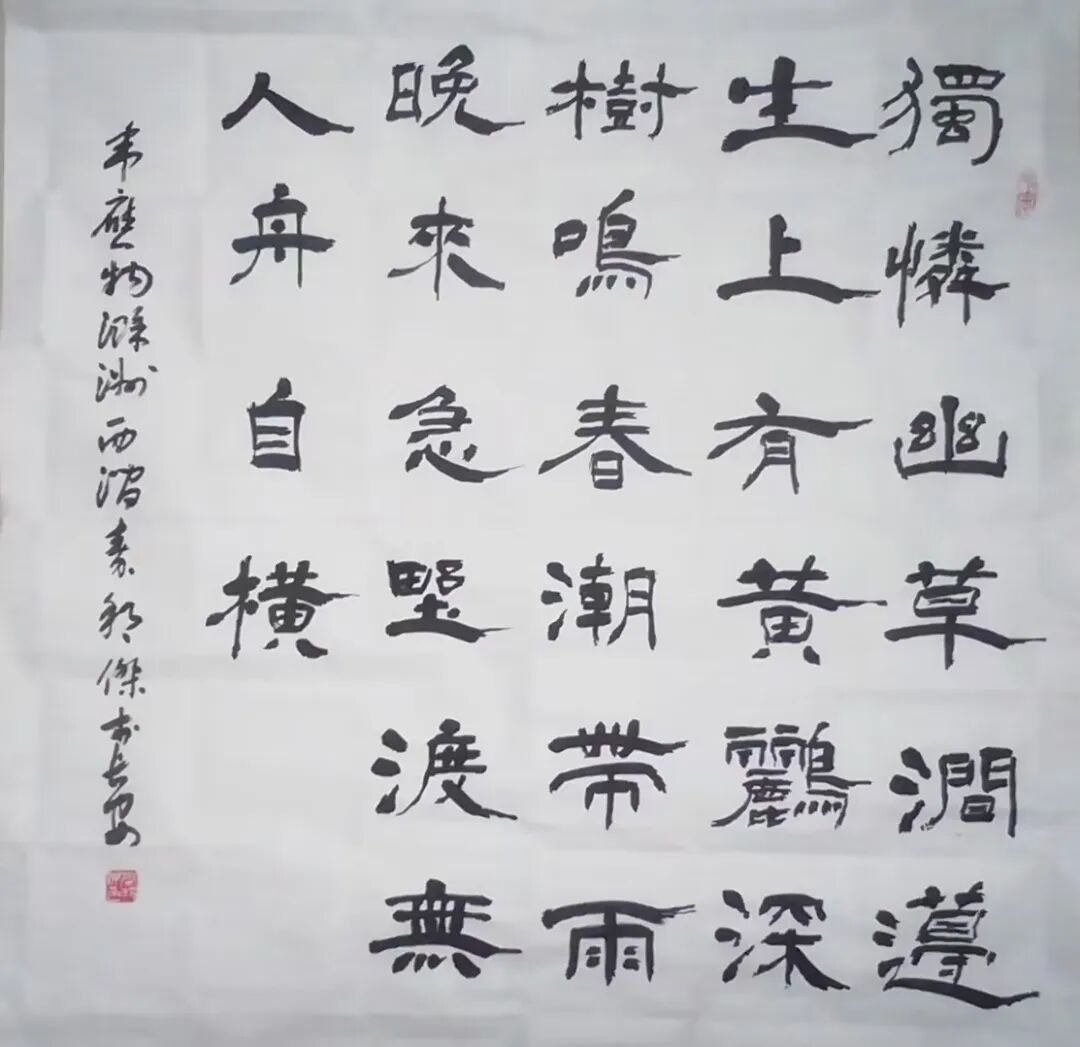 獨憐幽草澗邊
生上有黃鸝深
樹鳴春潮帶雨
晚來急野渡無
人舟自橫
韋應物滁洲西澗傑於長安